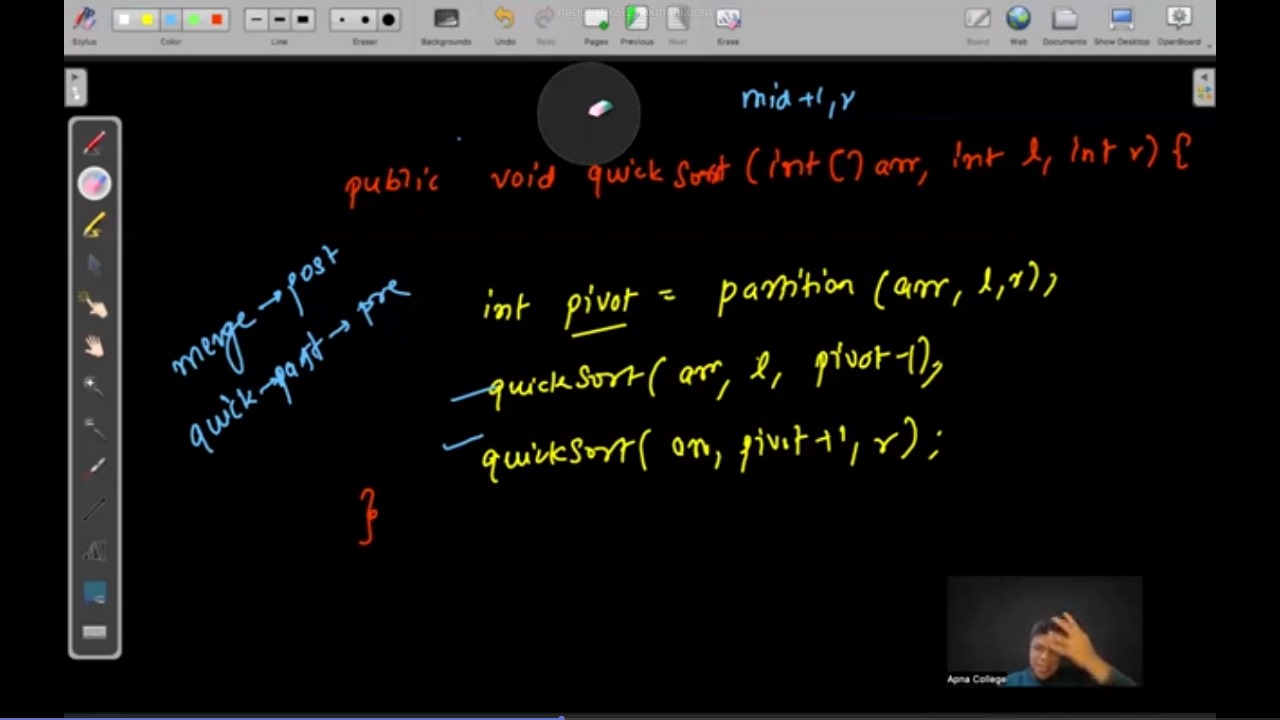 Stylus
Color
Line
Eraser
Backgrounds
Undo
Redo
Pages
Previous
Next
Erase
Board
Web
Documents
Show Desktop
OpenBoard
mid+1, r
public void quickSort (int[] arr, int l, int r) {
merge → post
quick → part → pre
int pivot = partition (arr, l, r);
quickSort( arr, l, pivot-1);
quickSort( arr, pivot+1, r);
}
Apna College